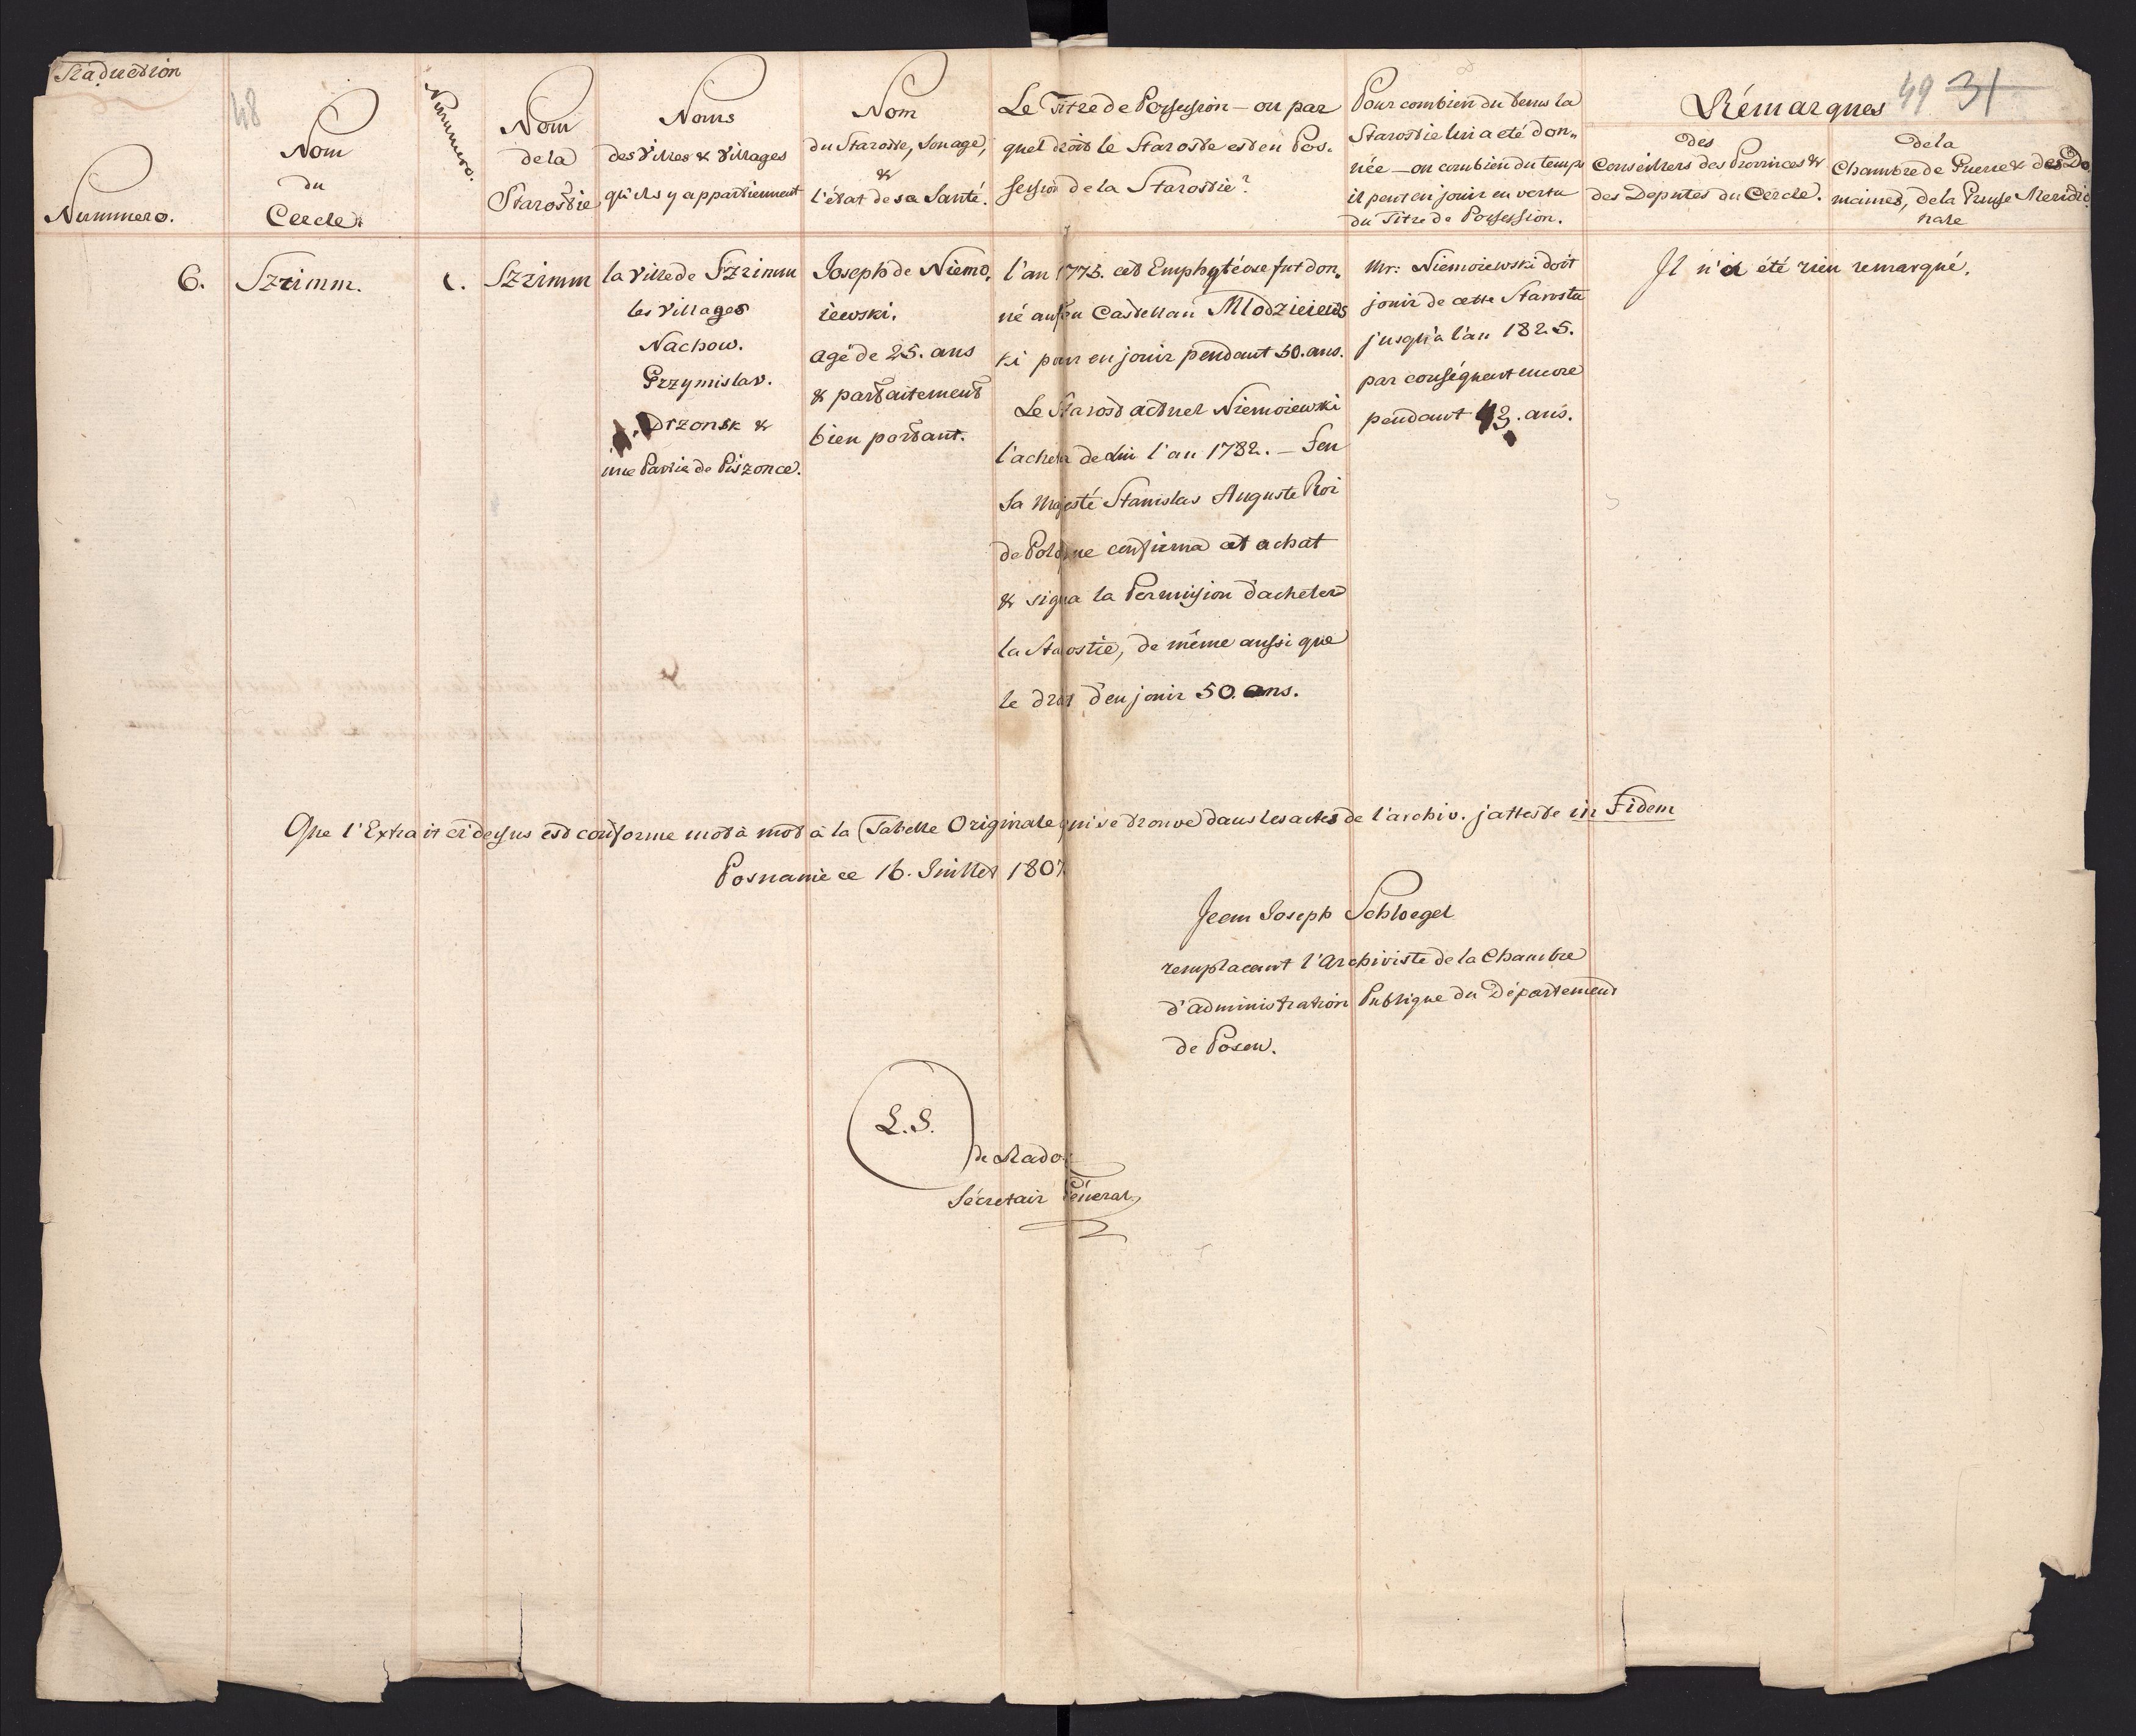 Traduction
48
49 31
Nummero.
Nom
du
Cercle.
Nummero.
Nom
de la
Starostie
Noms
des Villes & Villages
qu'ils y appartiennent
Nom
du Staroste, son age,
&
l'état de sa Santé.
Le Titre de Possession – ou par
quel droit le Staroste est en Pos-
session de la Starostie?
Pour combien du tems la
Starostie lui a eté don„
née — ou combien du temps
il peut en jouir en vertu
du Titre de Possession.
Rémarques
des
Conseillers des Provinces &
des Deputés du Cercle.
de la
Chambre de Guerre & des Do
maines, de la Prusse Meridio
nale
6.
Szrimm.
1.
Szrimm
la Ville de Szrimm
les Villages
Nachow.
Przymislav.
Drzonsk &
une Partie de Piszonce.
Joseph de Niemo„
iewski.
agé de 25. ans
& parfaitement
bien portant.
l'an 1775. cet Emphytéose fut don„
né au feu Castellan Mlodzieiews
ki pour en jouir pendant 50. ans.
Le Starost actuel Niemoiewski
l'acheta de lui l'an 1782. — Feu
Sa Majesté Stanislas Auguste Roi
de Pologne confirma cet achat
& signa la Permission d'acheter
la Starostie, de même aussi que
le droit d'en jouir 50. ans.
Mr: Niemoiewski doit
jouir de cette Starostie
jusqu'à l'an 1825.
par conséquent encore
pendant 43. ans.
Il n'a été rien remarqué.
Que l'Extrait ci dessus est conforme mot à mot à la Tabelle Originale qui se trouve dans les actes de l'archiv. j'atteste in Fidem
Posnanie ce 16. Juillet 1807.
Jean Joseph Schloegel
remplacant l'Archiviste de la Chambre
d'administration Publique du Département
de Posen.
L. S.
de
Sécretair Géneral